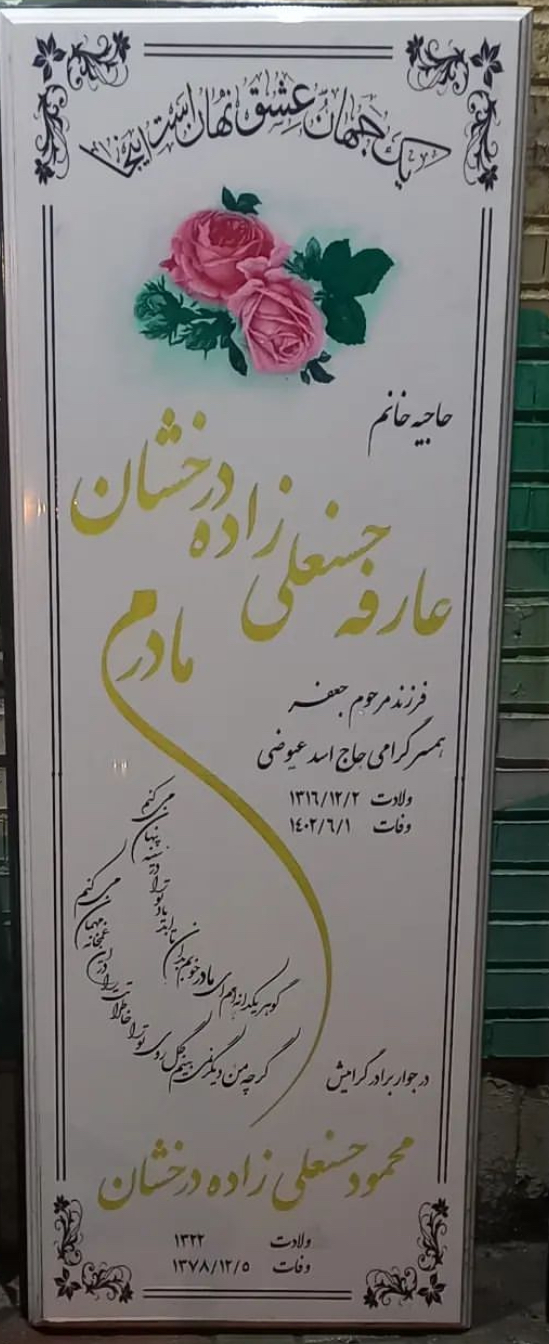 یک جهان عشق نهان است اینجا
حاجیه خانم
عارفه حسنعلی زاده درخشان
مادرم
فرزند مرحوم جعفر
همسر گرامی حاج اسد عیوضی
ولادت ١٣١٦/١٢/٢
وفات ١٤٠٢/٦/١
گوهر یکدانه ام ای مادر خوبم بدان تا ابد یاد تو را در سینه پنهان می کنم
گرچه من دیگر نمی بینم گل روی تو را خاطراتت را در این غمخانه مهمان می کنم
در جوار برادر گرامیش
محمود حسنعلی زاده درخشان
ولادت ١٣٢٢
وفات ١٣٧٨/١٢/٥